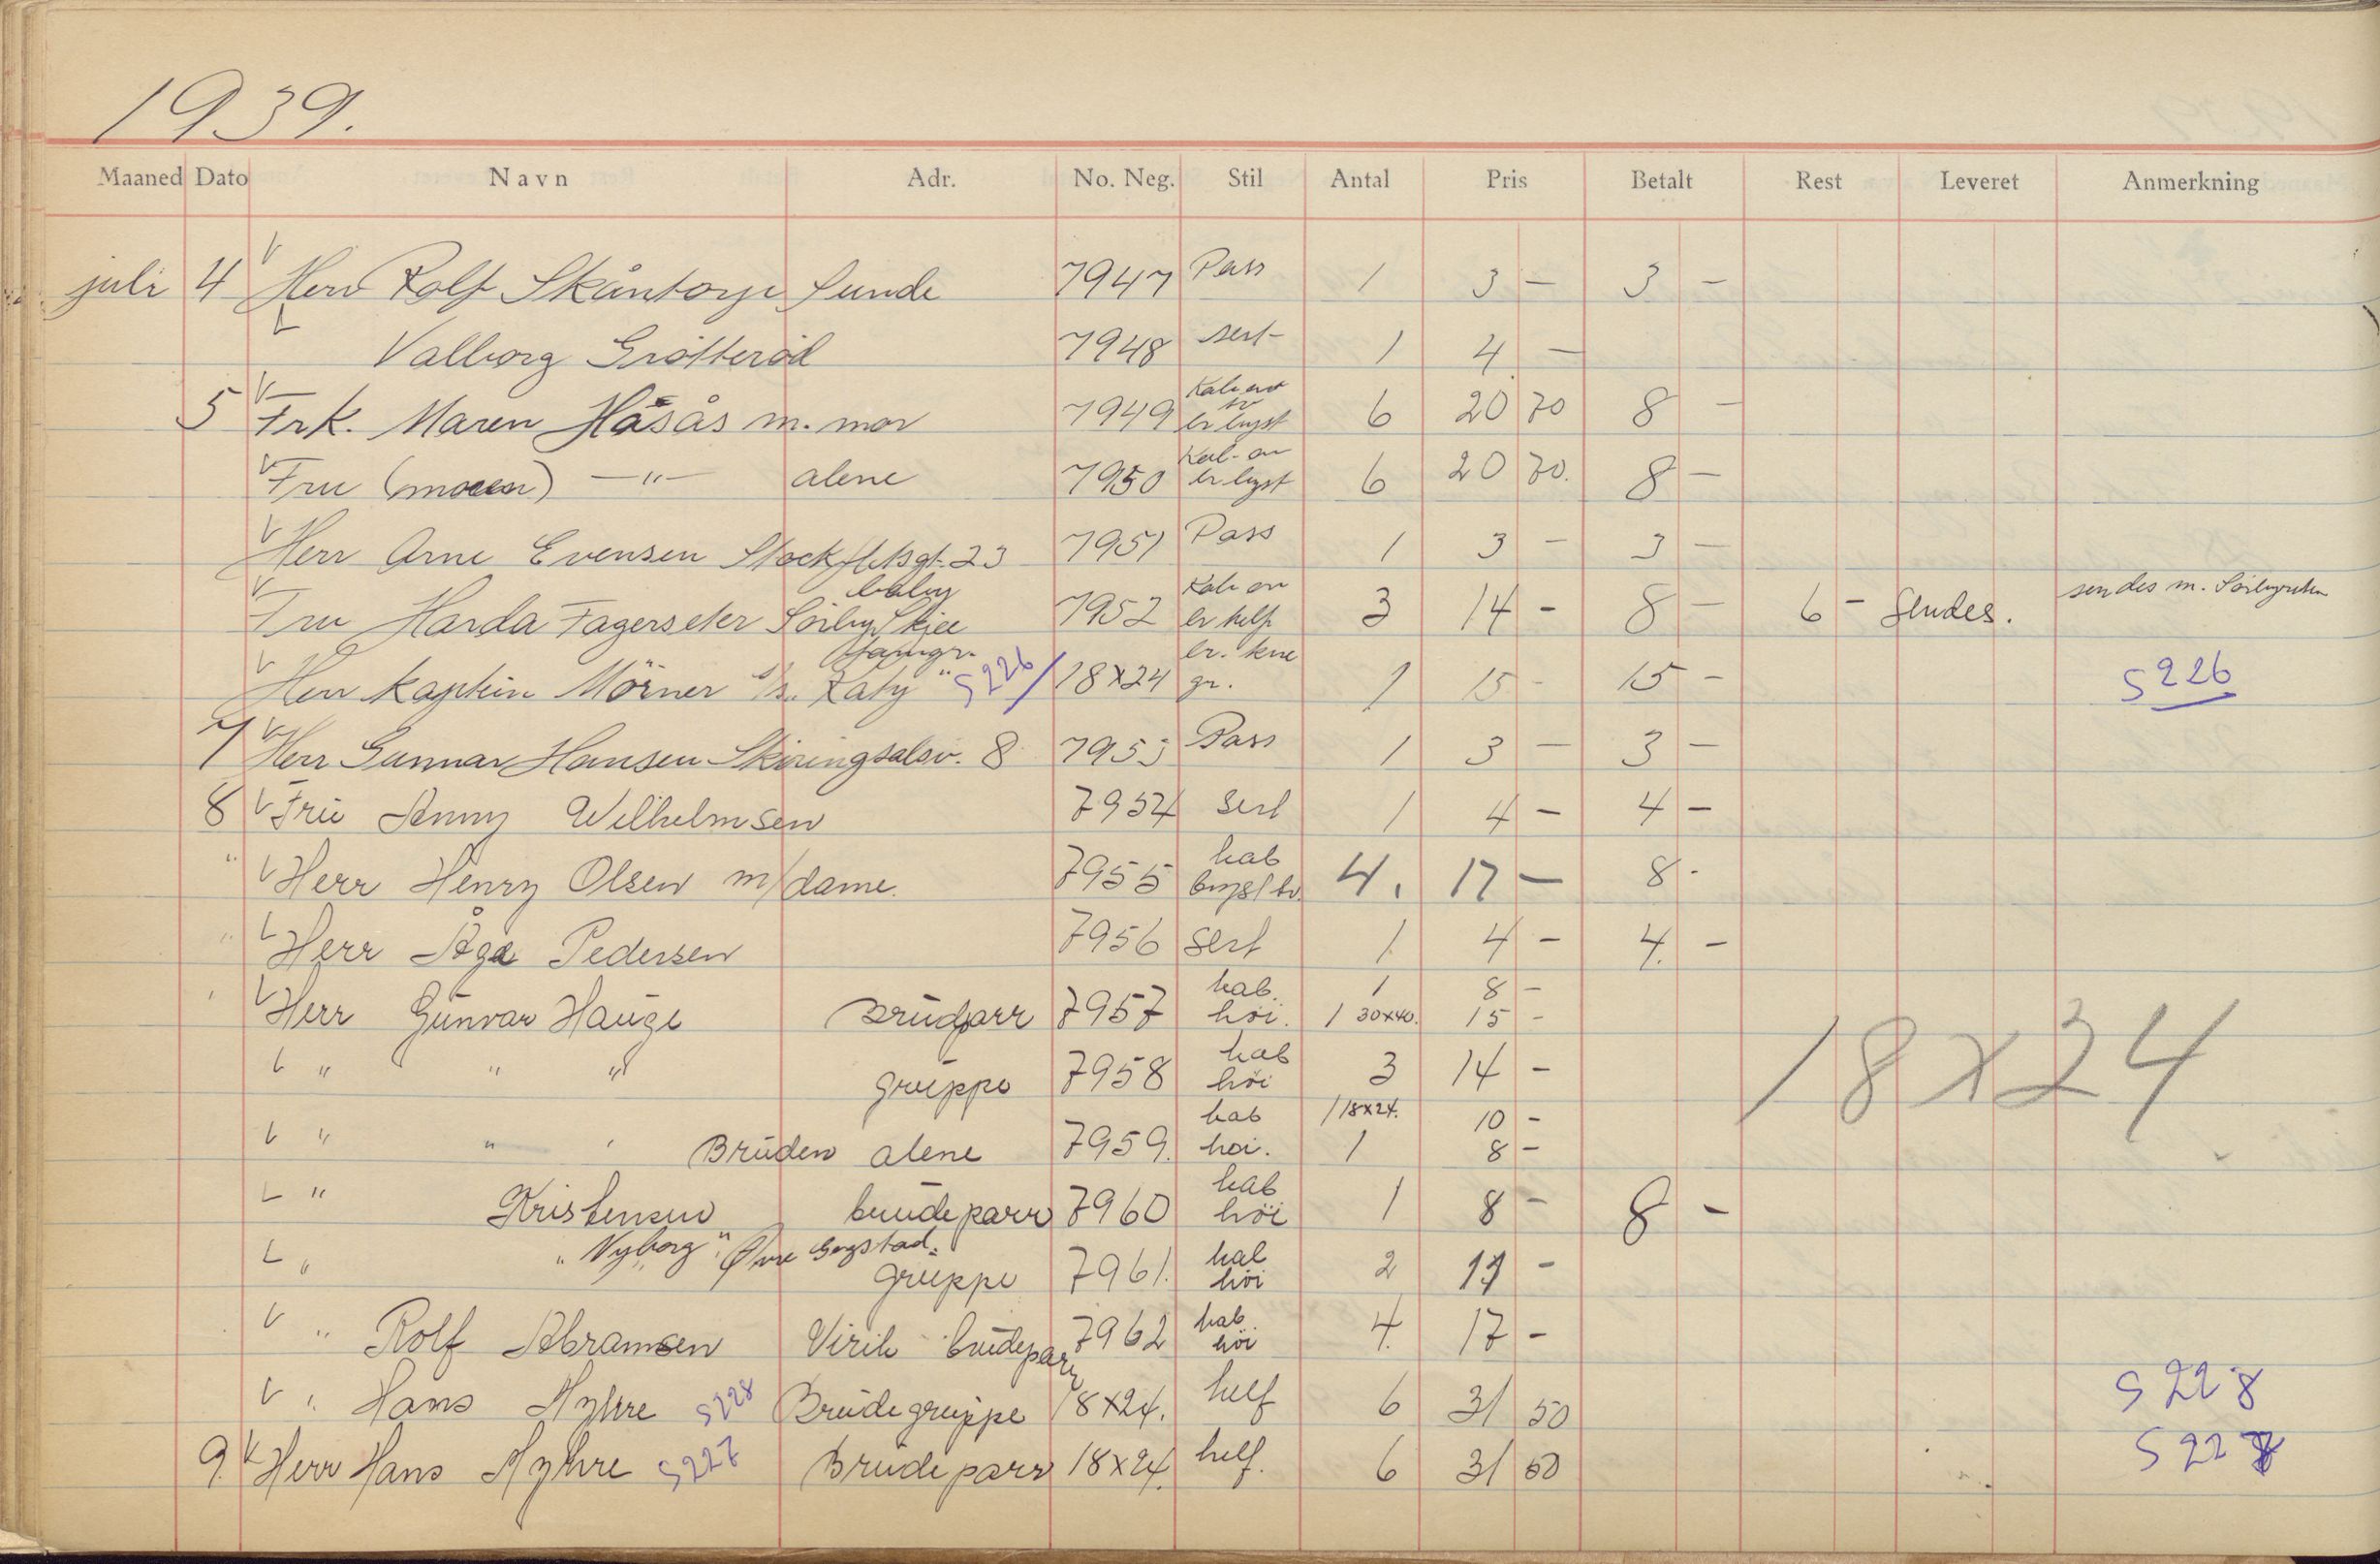 1939.
Maaned Dato Navn Adr. No. Neg. Stil Antal Pris Betalt Rest Leveret Anmerkning
juli 4 Herr Rolf Skåntorp Sunde 7947 Pass 1 3 - 3 -
Valborg Grötteröd 7948 sert- 1 4 -
5 Frk. Maren Håsås m. mor 7949 br byst 6 20 70 8 -
Fru (moren) -"- alene 7950 Kab. br byst 6 20 70. 8 -
Herr Arne Evensen Stockfletsgt. 23 7951 Pass 1 3 - 3 -
Fru Harda Fagerseter baby Sörby Skjee 7952 Kab br helf 3 14 - 8 - 6 - Sendes. sendes m.
Herr Kaptein Mörner famgr. "Katy" S226/ 18x24 br. kne gr. 1 15 - 15 - S226
7 Herr Gunnar Hansen Skiringsalsv. 8 7953 Pass 1 3 - 3 -
8 Fru Anny Wilhelmsen 7954 sert 1 4 - 4 -
" Herr Henry Olsen m/dame. 7955 kab byst br. 4. 17 - 8 -
" Herr Åge Pedersen 7956 sert 1 4 - 4. -
" Herr Gunvar Hauge Brudparr 7957 kab. höi. 1 8 -
1 30x40. 15 -
" " " gruppe 7958 kab höi 3 14 - 18x24
" " " Bruden alene 7959. kab hoi. 1 18x24. 10 -
1 8 -
" Kristensen brudeparr 7960 kab höi 1 8 - 8 -
" "Nyborg" Øvre Bogstad. gruppe 7961. kab höi 2 11 -
" Rolf Abramsen Virik brudeparr 7962 kab. höi 4. 17 -
" Hans Myhre S228 Brudegruppe 18x24. helf 6 31 50 S228
9 Herr Hans Myhre S227 Brudeparr 18x24. helf. 6 31 50 S227